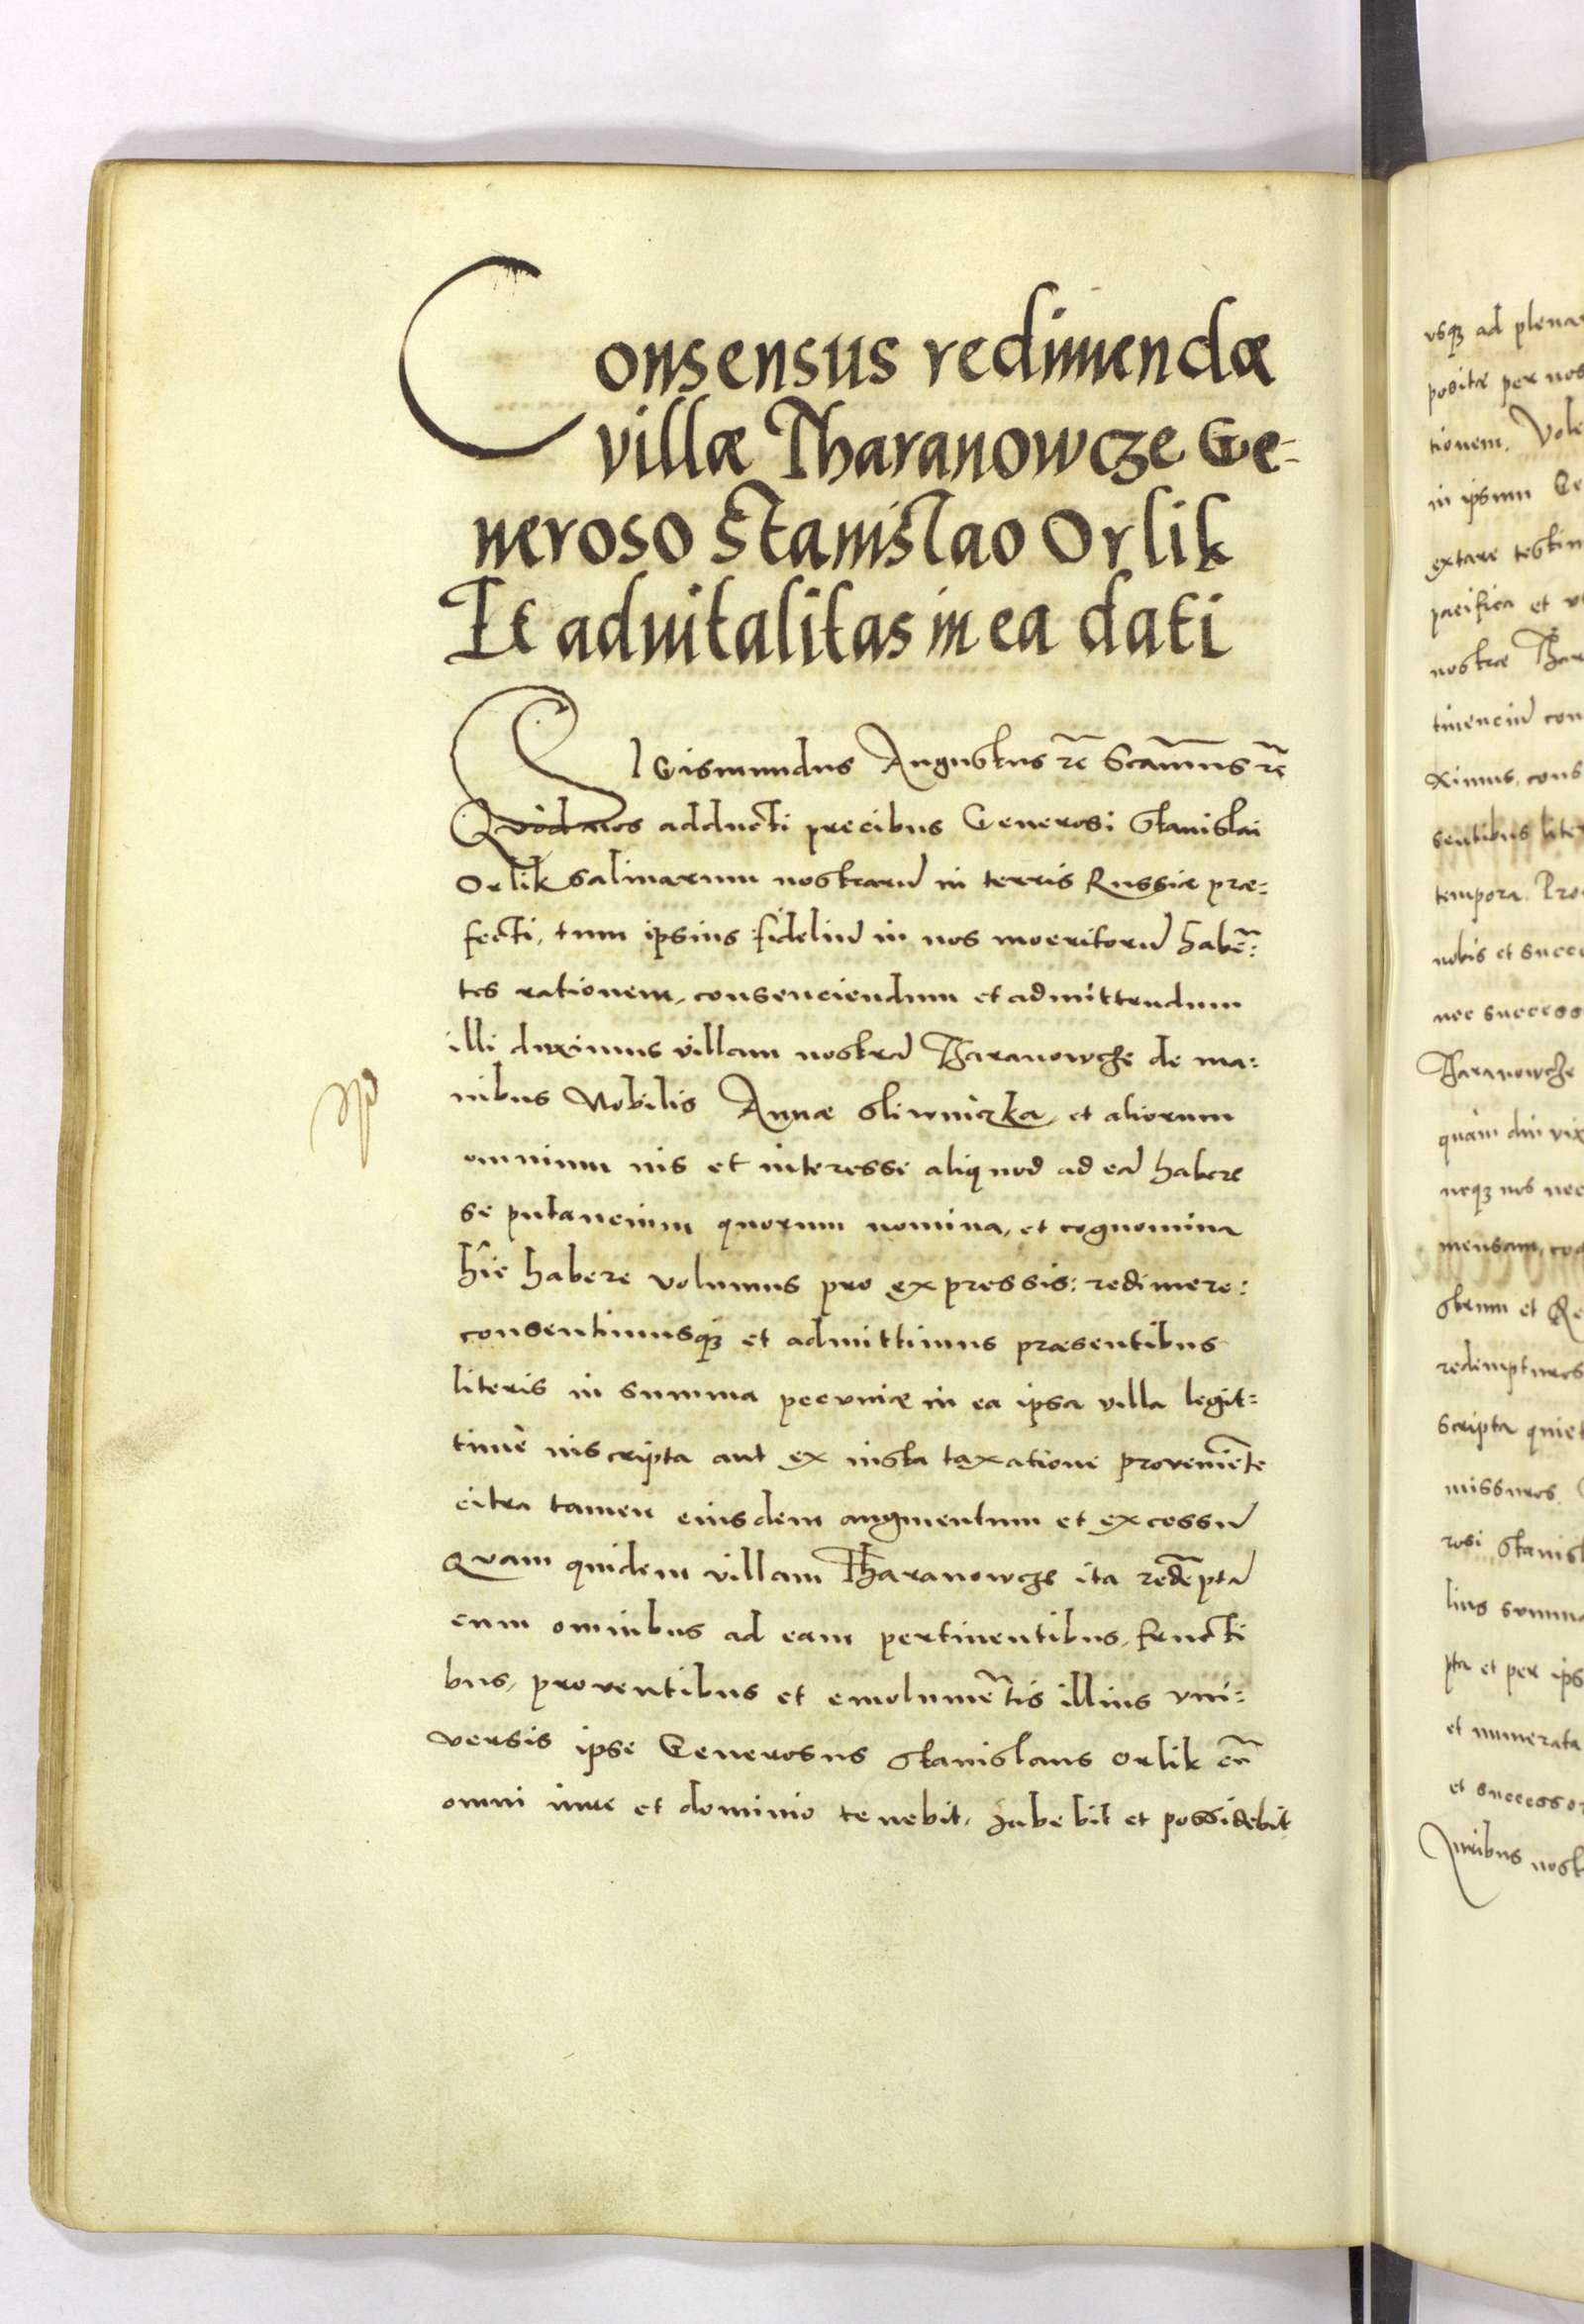 Consensus redimendæ
villæ Tharanowcze Ge-
neroso Stanislao Orlik
Et aduitalitas in ea dati
SIGismundus Augustus rē Scām̄us rē
Quod nos adducti precibus Generosi Stanislai
Orlik salinarum nostrarū in terris Russiæ præ=
fecti, tum ipsius fideliū in nos moeritorū habē=
tes rationem, consenciendum et admittendum
illi duximus villam nostrā Tharanowcze de ma=
nibus Nobilis Annæ Sliwniczka, et aliorum
omnium ius et interesse aliquod ad eā habere
se putancium quorum nomina, et cognomina
hic habere volumus pro expressis: redimere:
consentimusq3 et admittimus præsentibus
literis in summa pecuniæ in ea ipsa villa legit=
time inscripta aut ex iusta taxatione proveniēte
citra tamen eiusdem augmentum et excessū
Quam quidem villam Tharanowcze ita redēptā
cum omnibus ad eam pertinentibus, fructi
bus, proventibus et emolumētis illius vni=
versis ipse Generosus Stanislaus Orlik cū
omni iure et dominio tenebit, habebit et possidebit
vsq3 ad plena
positæ per nos
tionem. Vole
in ipsum Ge
extare testim
pacifica et vt
nostræ Thar
tinenciū con
ximus, cons
sentibus liter
tempora. Pro
nobis et succe
nec success
Tharanowcze
quàm diu vix
neq3 nos nec
mensam, co
strum et Re
redempturos
scripta quiet
missuros.
rosi Stanisl
lius summa
pta et per ips
et numerata
et successor
Juribus nost